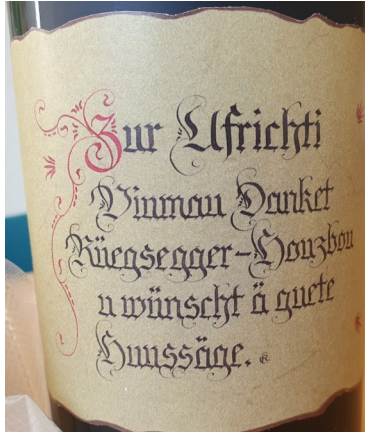 Zur Ufrichti
Viumau Danket
Rüegsegger-Houzbou
u wünscht ä guete
Huussäge.